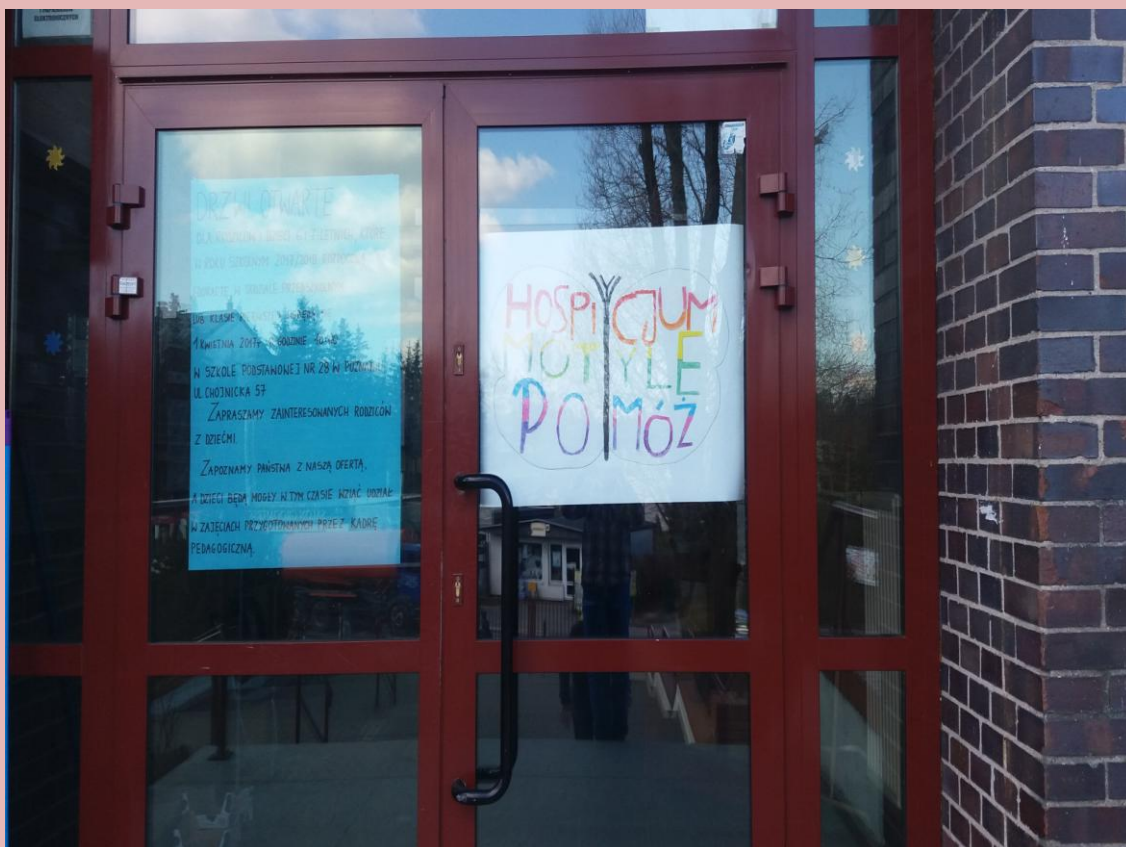 ELEKTRONICZNYCH
DRZWI OTWARTE
DLA RODZICÓW I DZIECI 6 I 7-LETNICH, KTÓRE
W ROKU SZKOLNYM 2017/2018 ROZPOCZNĄ
W ODDZIALE PRZEDSZKOLNYM
LUB KLASIE PIERWSZEJ
1 KWIETNIA 2017r. GODZINIE
W SZKOLE PODSTAWOWEJ NR 28 W
UL. CHOJNICKA 57
ZAPRASZAMY ZAINTERESOWANYCH RODZICÓW
Z DZIEĆMI.
ZAPOZNAMY PAŃSTWA Z NASZĄ OFERTĄ,
A DZIECI BĘDĄ MOGŁY W TYM CZASIE WZIĄĆ UDZIAŁ
W ZAJĘCIACH PRZYGOTOWANYCH PRZEZ KADRĘ
PEDAGOGICZNĄ.
HOSPICJUM
MOTYLE
POMÓŻ